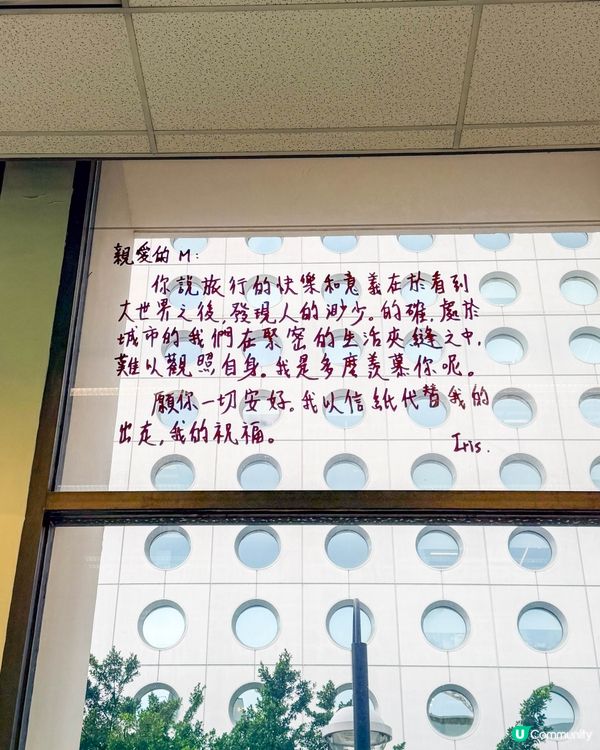 親愛的 M:
你說旅行的快樂和意義在於看到
大世界之後,發現人的渺少。的確,處於
城市的我們在緊密的生活夾縫之中,
難以觀照自身。我是多麼羨慕你呢。
願你一切安好。我以信紙代替我的
出走,我的祝福。
Iris.
U Community